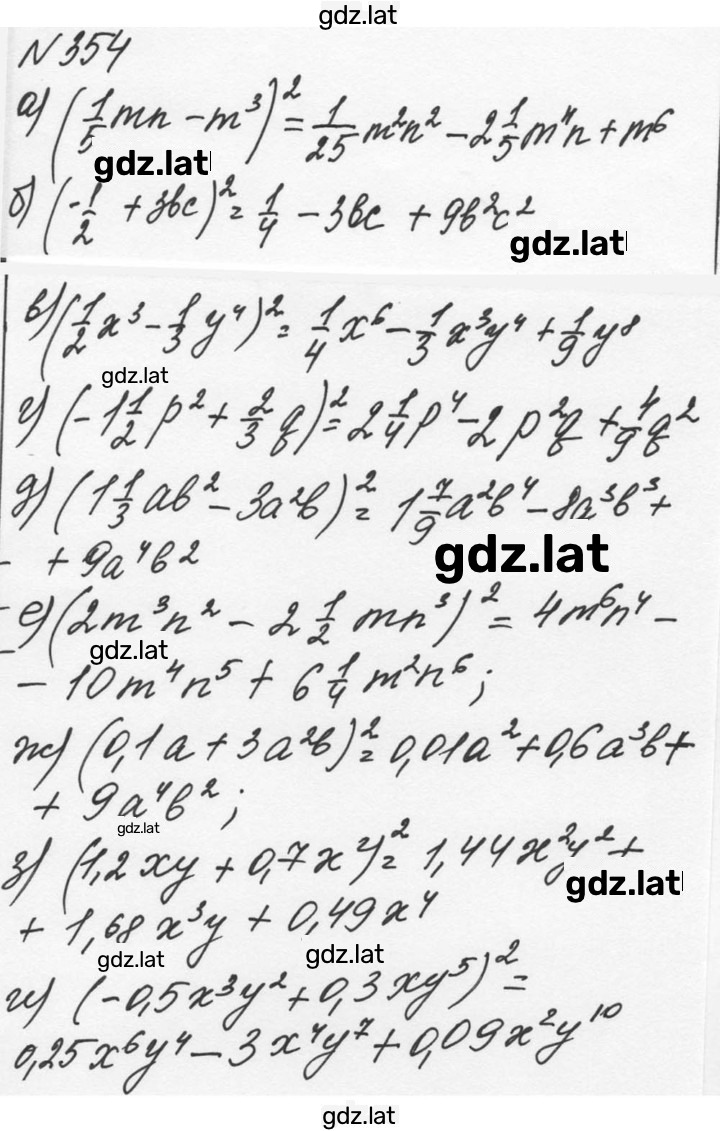 gdz.lat
N354
а) (1/5 mn - m³)² = 1/25 m²n² - 2 1/5 m⁴n + m⁶
gdz.lat
б) (-1/2 + 3bc)² = 1/4 - 3bc + 9b²c²
gdz.lat
в) (1/2 x³ - 1/3 y⁴)² = 1/4 x⁶ - 1/3 x³y⁴ + 1/9 y⁸
gdz.lat
г) (-1 1/2 p² + 2/3 q)² = 2 1/4 p⁴ - 2p²q + 4/9 q²
д) (1 1/3 ab² - 3a²b)² = 1 7/9 a²b⁴ - 8a³b³ +
+ 9a⁴b²
gdz.lat
е) (2m³n² - 2 1/2 mn³)² = 4m⁶n⁴ -
gdz.lat
- 10m⁴n⁵ + 6 1/4 m²n⁶;
ж) (0,1a + 3a²b)² = 0,01a² + 0,6a³b +
+ 9a⁴b²;
gdz.lat
з) (1,2xy + 0,7x²)² = 1,44x²y² +
gdz.lat
+ 1,68x³y + 0,49x⁴
gdz.lat
gdz.lat
и) (-0,5x³y² + 0,3xy⁵)² =
0,25x⁶y⁴ - 3x⁴y⁷ + 0,09x²y¹⁰
gdz.lat